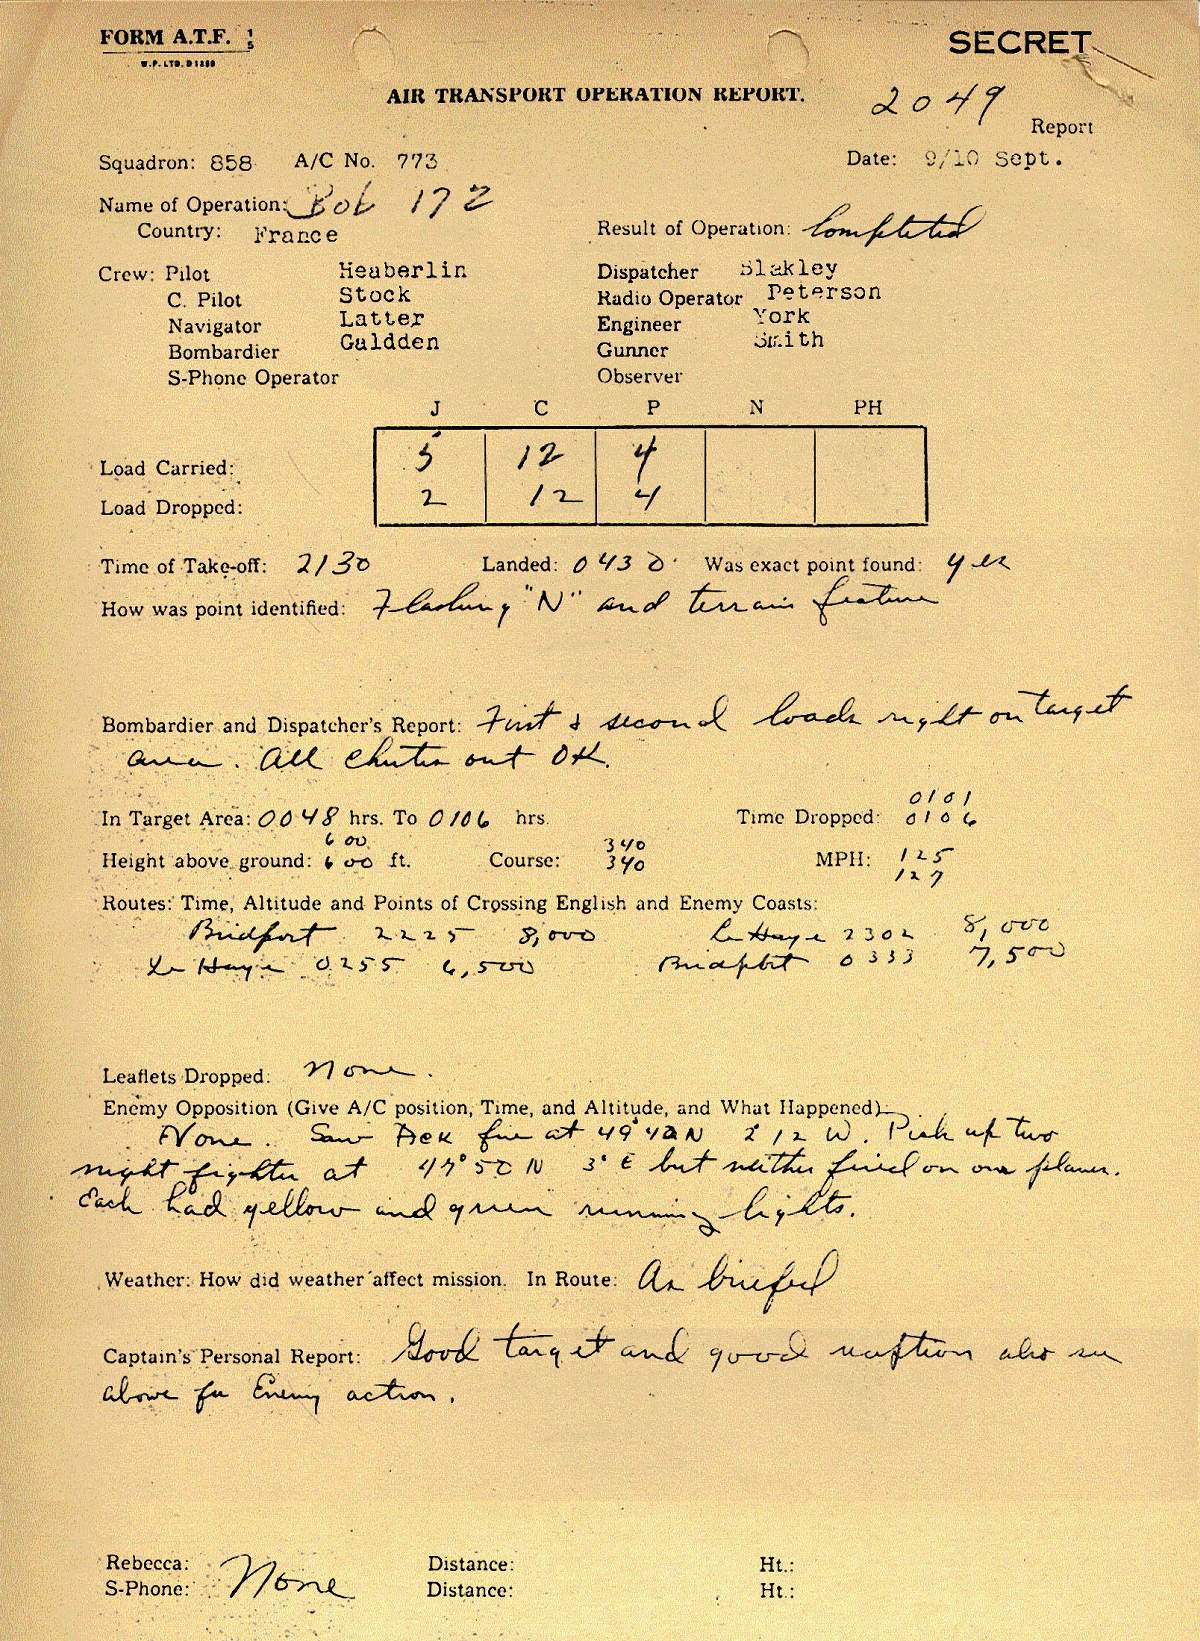 FORM A.T.F. 1/5
W.P. LTD. D1289
SECRET
AIR TRANSPORT OPERATION REPORT.
2049
Report
Squadron: 858 A/C No. 773 Date: 9/10 Sept.
Name of Operation: Bob 172
Country: France Result of Operation: Completed
Crew: Pilot Heaberlin Dispatcher Blakley
C. Pilot Stock Radio Operator Peterson
Navigator Latter Engineer York
Bombardier Galdden Gunner Smith
S-Phone Operator Observer
J C P N PH
Load Carried: 5 12 4
Load Dropped: 2 12 4
Time of Take-off: 2130 Landed: 0430 Was exact point found: yes
How was point identified: Flashing "N" and terrain feature
Bombardier and Dispatcher's Report: First & second loads right on target
area. All chutes out OK.
0101
In Target Area: 0048 hrs. To 0106 hrs. Time Dropped: 0106
600 340
Height above ground: 600 ft. Course: 340 MPH: 125
127
Routes: Time, Altitude and Points of Crossing English and Enemy Coasts:
Bridport 2225 8,000 Le Haye 2302 8,000
Le Haye 0255 6,500 Bridport 0333 7,500
Leaflets Dropped: None.
Enemy Opposition (Give A/C position, Time, and Altitude, and What Happened)
None. Saw Ack fire at 49°42N 2°12 W. Pick up two
night fighter at 47°50 N 3° E but neither fired on our planes.
Each had yellow and green running lights.
Weather: How did weather affect mission. In Route: As briefed
Captain's Personal Report: Good target and good reception also see
above for Enemy action.
Rebecca: None Distance: Ht.:
S-Phone: Distance: Ht.: